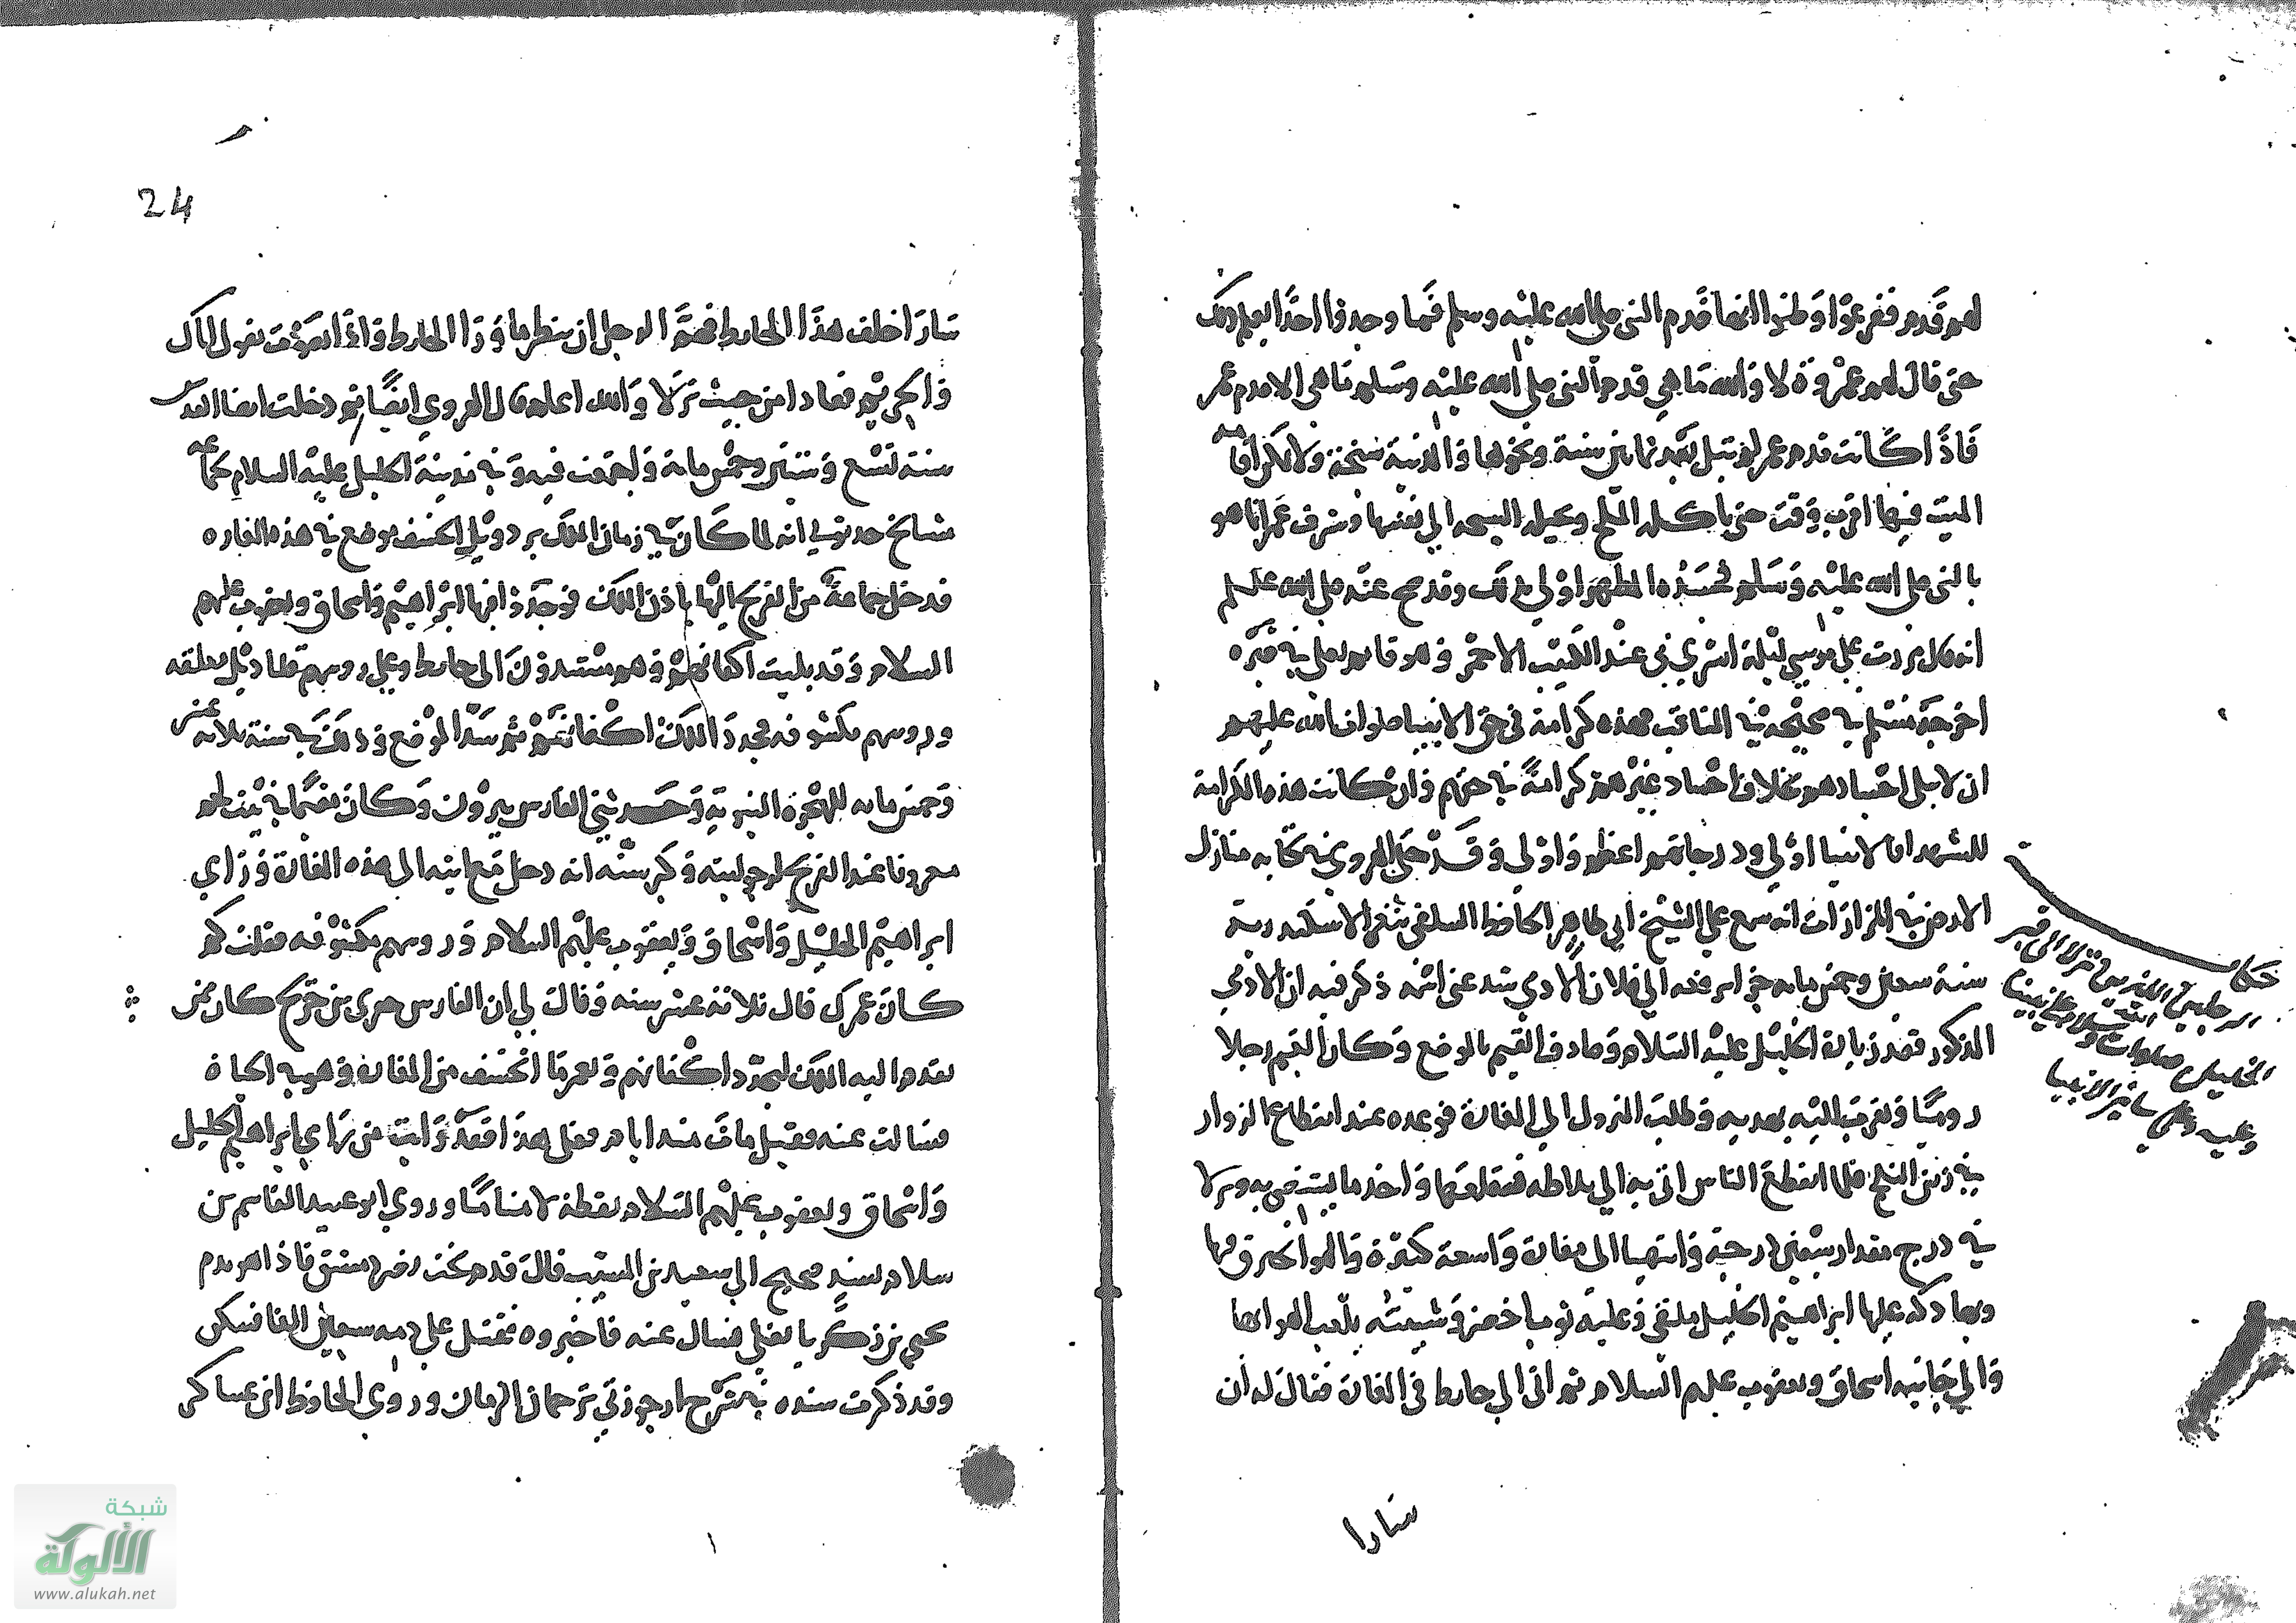 لهم قدم ففزعوا وظنوا انها قدم النبي صلى الله عليه وسلم فما وجدوا احدا يعلم ذلك
حتى قال لهم عروة لا والله ما هي قدم النبي صلى الله عليه وسلم ما هي الا قدم عمر
فاذا كانت قدم عمر لم تبل بعد ثمانين سنة ونحوها والمدينة سبخة ولا تكن اقامة
الميت فيها اقرب وقت حتى ياكله الملح ويحيله السبخة الى نفسها وشرف عمر انما هو
بالنبي صلى الله عليه وسلم فجسده المطهر اولى بذلك وقد صح عنه صلى الله عليه وسلم
انه قال مررت على موسى ليلة اسري بي عند الكثيب الاحمر وهو قائم يصلي في قبره
اخرجه مسلم في صحيحه في المناقب فهذه كرامة في حق الانبيا صلوات الله عليهم
ان لا تبلى اجسادهم بخلاف اجساد غيرهم كرامة في حقهم وان كانت هذه الكرامة
للشهدا فالانبيا اولى ودرجاتهم اعظم واولى وقد حكى الهروي في كتابه منازل
الارض في المزارات انه سمع على الشيخ ابي طاهر الحافظ السلفي بثغر الاسكندرية
سنة سبعين وخمس مايه جزا يرفعه الى فلان الادمي شد عني اسمه ذكر فيه ان الادمي
المذكور قصد زيارة الخليل عليه السلام وصادف القيم بالموضع وكان القيم رجلا
روميا وتقرب اليه بهديه وطلب النزول الى المغارة فوعده عند انقطاع الزوار
في زمن الثلج فلما انقطع الناس اتى به الى بلاطه فقلعها واخذ ما يستضي به ونزلا
في درج مقدار سبعين درجة وانتهيا الى مغارة واسعة كبيرة والهوا يخترق فيها
وبها دكه عليها ابراهيم الخليل ملقى وعليه ثوب اخضر وشيبته يلعب الهوا بها
والى جانبه اسحاق ويعقوب عليهم السلام ثم اتى الى حايط في المغارة فقال له ان
سارا
حكاية
الرجلين الذين نزلا الى قبر
الخليل صلوات الله وسلامه على نبينا
وعليه وعلى سائر الانبيا
24
سارا خلف هذا الحايط فهم الرجل ان ينظر ما ورا الحايط واذا بصوت يقول اياك
والحريم فعادا من حيث نزلا والله اعلم قال الهروي ايضا ثم دخلت انا القدس
سنة تسع وستين وخمس ماية واجتمعت فيه وفي مدينة الخليل عليه السلام بجماعة
مشايخ حدثوني انه لما كان في زمان الملك بردويل انخسف موضع في هذه المغاره
فدخل جماعة من الفرنج اليها باذن الملك فوجدوا فيها ابراهيم واسحاق ويعقوب عليهم
السلام وقد بليت اكفانهم وهم مستندون الى حايط وعلى روسهم قناديل معلقه
وروسهم مكشوفه فجدد الملك اكفانهم ثم سد الموضع وذلك في سنة ثلاثه عشر
وخمس مايه للهجرة النبوية وحدثني الفارس بيرون وكان مقيما في بيت لحم
معروفا عند الفرنج لرجوليته وكبر سنه انه دخل مع ابيه الى هذه المغارة وراي
ابراهيم الخليل واسحاق ويعقوب عليهم السلام وروسهم مكشوفه فقلت كم
كان عمرك قال ثلاثة عشر سنه وقال لي ان الفارس جري بن جرج كان ممن
تقدم اليه الملك ليجدد اكفانهم ويعمر ما انخسف من المغارة وهو في الحياة
فسالت عنه فقيل مات منذ ايام فعلى هذا فقد رايت من راي ابراهيم الخليل
واسحاق ويعقوب عليهم السلام يقظة لا مناما وروي ابو عبيد القاسم بن
سلام بسند صحيح الى سعيد بن المسيب قال قدم بخت نصر دمشق فاذا هو بدم
يحيى بن زكريا يغلي فسال عنه فاخبروه فقتل على دمه سبعين الفا فسكن
وقد ذكرت سنده في شرح ارجوزتي ترجمان الزمان وروي الحافظ ابن عساكر
شبكة
الألوكة
www.alukah.net